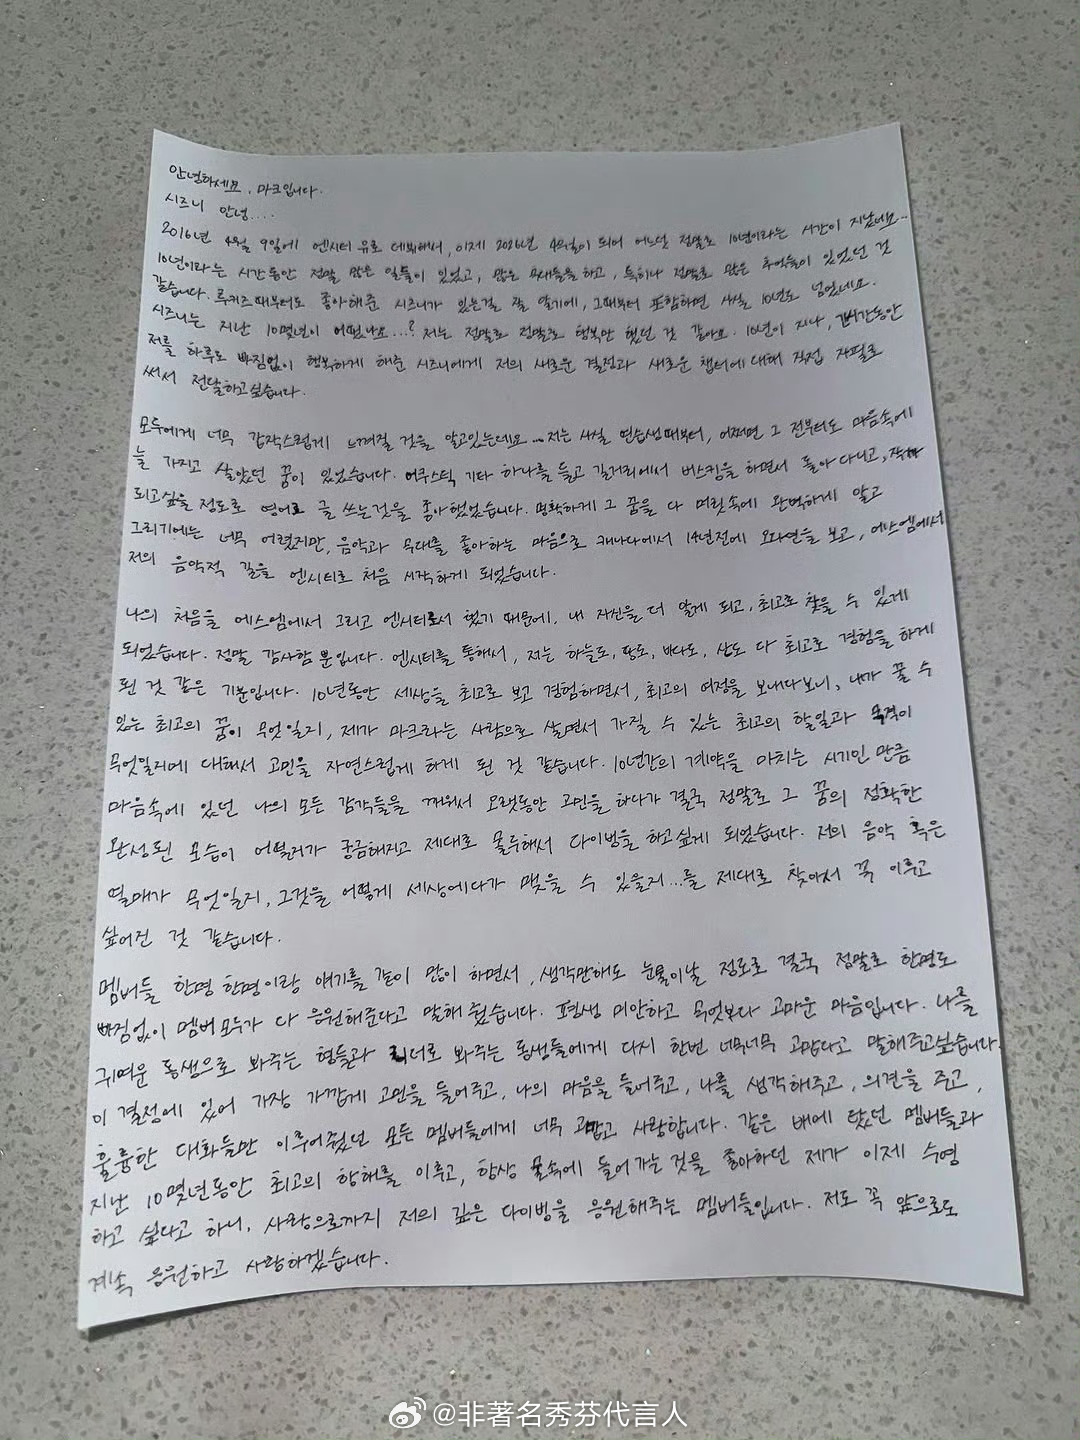 안녕하세요, 마크입니다.
시즈니 안녕....
2016년 4월 9일에 엔시티 유로 데뷔해서, 이제 2026년 4월이 되어 어느새 정말로 10년이라는 시간이 지났네요..
10년이라는 시간동안 정말 많은 일들이 있었고, 많은 무대들을 하고, 특히나 정말로 많은 추억들이 있었던 것
같습니다. 루키즈때부터도 좋아해준 시즈니가 있는걸 잘 알기에, 그때부터 포함하면 사실 10년도 넘었네요.
시즈니는 지난 10몇년이 어땠나요...? 저는 정말로 정말로 행복만 했던 것 같아요. 10년이 지나, 긴시간동안
저를 하루도 빠짐없이 행복하게 해준 시즈니에게 저의 새로운 결정과 새로운 챕터에 대해 직접 자필로
써서 전달하고싶습니다.
모두에게 너무 갑작스럽게 느껴질 것을 알고있는데요... 저는 사실 연습생때부터, 어쩌면 그 전부터도 마음속에
늘 가지고 살았던 꿈이 있었습니다. 어쿠스틱 기타 하나를 들고 길거리에서 버스킹을 하면서 돌아다니고, 작가
되고싶을 정도로 영어로 글 쓰는것을 좋아했었습니다. 명확하게 그 꿈을 다 머릿속에 완벽하게 알고
그리기에는 너무 어렸지만, 음악과 무대를 좋아하는 마음으로 캐나다에서 14년전에 오디션을 보고, 에스엠에서
저의 음악적 길을 엔시티로 처음 시작하게 되었습니다.
나의 처음을 에스엠에서 그리고 엔시티로서 했기 때문에, 내 자신을 더 알게 되고, 최고로 찾을 수 있게
되었습니다. 정말 감사할 뿐입니다. 엔시티를 통해서, 저는 하늘도, 땅도, 바다도, 산도 다 최고로 경험을 하게
된 것 같은 기분입니다. 10년동안 세상을 최고로 보고 경험하면서, 최고의 여정을 보내다보니, 내가 꿀 수
있는 최고의 꿈이 무엇일지, 제가 마크라는 사람으로 살면서 가질 수 있는 최고의 할일과 목적이
무엇일지에 대해서 고민을 자연스럽게 하게 된 것 같습니다. 10년간의 계약을 마치는 시기인 만큼
마음속에 있던 나의 모든 감각들을 깨워서 오랫동안 고민을 하다가 결국 정말로 그 꿈의 정확한
완성된 모습이 어떨지가 궁금해지고 제대로 몰두해서 다이빙을 하고싶게 되었습니다. 저의 음악 혹은
열매가 무엇일지, 그것을 어떻게 세상에다가 맺을 수 있을지...를 제대로 찾아서 꼭 이루고
싶어진 것 같습니다.
멤버들 한명 한명이랑 얘기를 같이 많이 하면서, 생각만해도 눈물이날 정도로 결국 정말로 한명도
빠짐없이 멤버 모두가 다 응원해준다고 말해줬습니다. 평생 미안하고 무엇보다 고마운 마음입니다. 나를
귀여운 동생으로 봐주는 형들과 리더로 봐주는 동생들에게 다시 한번 너무너무 고맙다고 말해주고싶습니다.
이 결정에 있어 가장 가깝게 고민을 들어주고, 나의 마음을 들어주고, 나를 생각해주고, 의견을 주고,
훌륭한 대화들만 이루어줬던 모든 멤버들에게 너무 고맙고 사랑합니다. 같은 배에 탔던 멤버들과
지난 10몇년동안 최고의 항해를 이루고, 항상 물속에 들어가는것을 좋아하던 제가 이제 수영
하고 싶다고 하니, 사랑으로까지 저의 깊은 다이빙을 응원해주는 멤버들입니다. 저도 꼭 앞으로도
계속 응원하고 사랑하겠습니다.
@非著名秀芬代言人